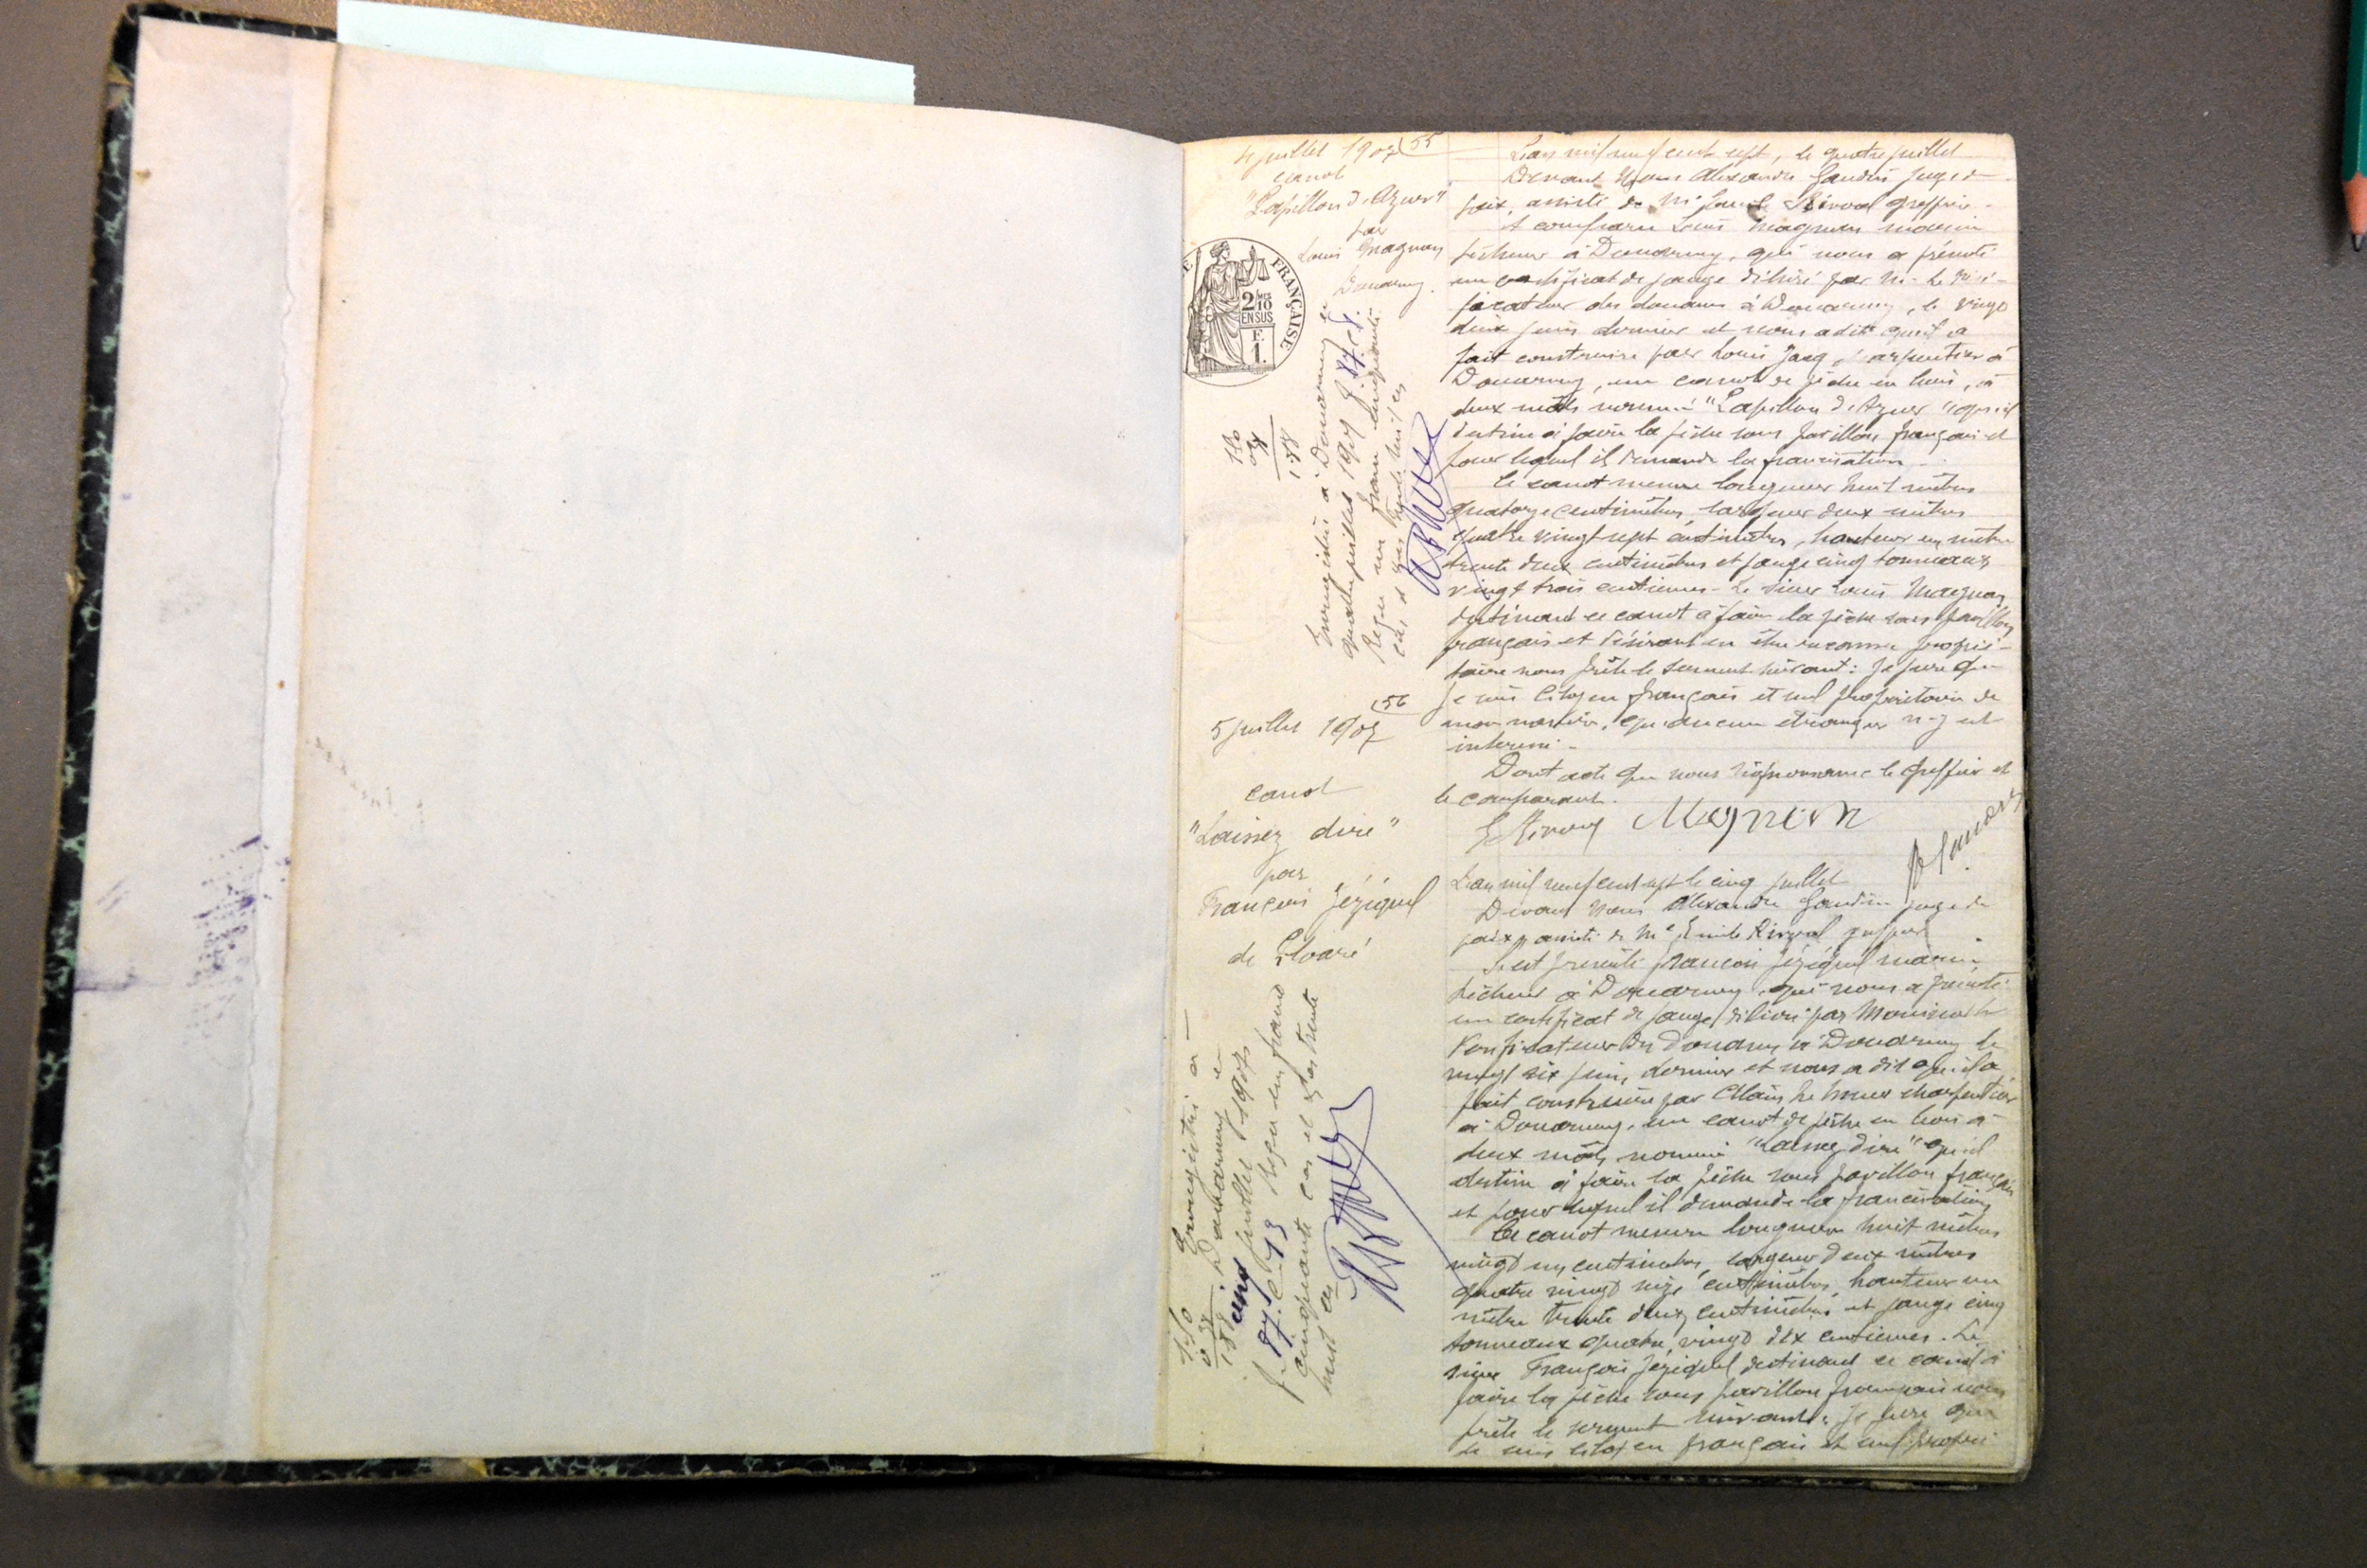 4 juillet 1907 (55
canot
"Papillon d'Azur"
par
Louis Magnan
Douarnez.
FRANÇAISE
2/10
EN SUS
F.
1.
150
038
188
Enregistré à Douarnenez le
quatre juillet 1907 f. 87 c. 8.
Reçu un franc cinquante
cs, et trente huit cs
L'an mil neuf cent sept, le quatre juillet
Devant Nous Alexandre Gaudin juge de
paix, assisté de Me Emile Rirval greffier.
A comparu Louis Magnan marin
pêcheur à Douarnez, qui nous a présenté
un certificat de jauge délivré par Mr. Le Véri-
ficateur des douanes à Douarnez, le vingt
deux juin dernier et nous a dit qu'il a
fait construire par Louis Jacq charpentier à
Douarnez, un canot de pêche en bois, à
deux mâts nommé "Papillon d'Azur" qu'il
destine à faire la pêche sous pavillon français et
pour lequel il demande la francisation.
Ce canot mesure longueur huit mètres
quatorze centimètres, largeur deux mètres
quatre vingt sept centimètres, hauteur un mètre
trente deux centimètres et jauge cinq tonneaux
vingt trois centièmes - Le sieur Louis Magnan
destinant ce canot à faire la pêche sous pavillon
français et désirant en être reconnu proprié-
taire nous prête le serment suivant : Je jure que
je suis citoyen français et seul propriétaire de
mon navire, qu'aucun étranger n'y est
intéressé -
Dont acte que nous signons avec le greffier et
le comparant.
E Rirval Magnan
A Gaudin
(56
5 juillet 1907
canot
"Laissez dire"
par
François Jézéquel
de Ploaré
150
038
188
Enregistré à
Douarnenez le
cinq juillet 1907
f. 87. c. 13 Reçu un franc
cinquante cs et cs trente
huit cs
L'an mil neuf cent sept le cinq juillet
Devant Nous Alexandre Gaudin juge de
paix, assisté de Me Emile Rirval greffier
S'est présenté François Jézéquel marin
pêcheur à Douarnez, qui nous a présenté
un certificat de jauge délivré par Monsieur le
Vérificateur des Douanes à Douarnez le
vingt six juin, dernier et nous a dit qu'il a
fait construire par Alain charpentier
à Douarnez, un canot de pêche en bois à
deux mâts, nommé "Laissez dire" qu'il
destine à faire la pêche sous pavillon français
et pour lequel il demande la francisation
Ce canot mesure longueur huit mètres
vingt un centimètres, largeur deux mètres
quatre vingt seize centimètres, hauteur un
mètre trente deux centimètres et jauge cinq
tonneaux quatre vingt dix centièmes. Le
sieur François Jézéquel destinant ce canot à
faire la pêche sous pavillon français nous
prête le serment suivant : Je jure que
je suis citoyen français et seul proprié